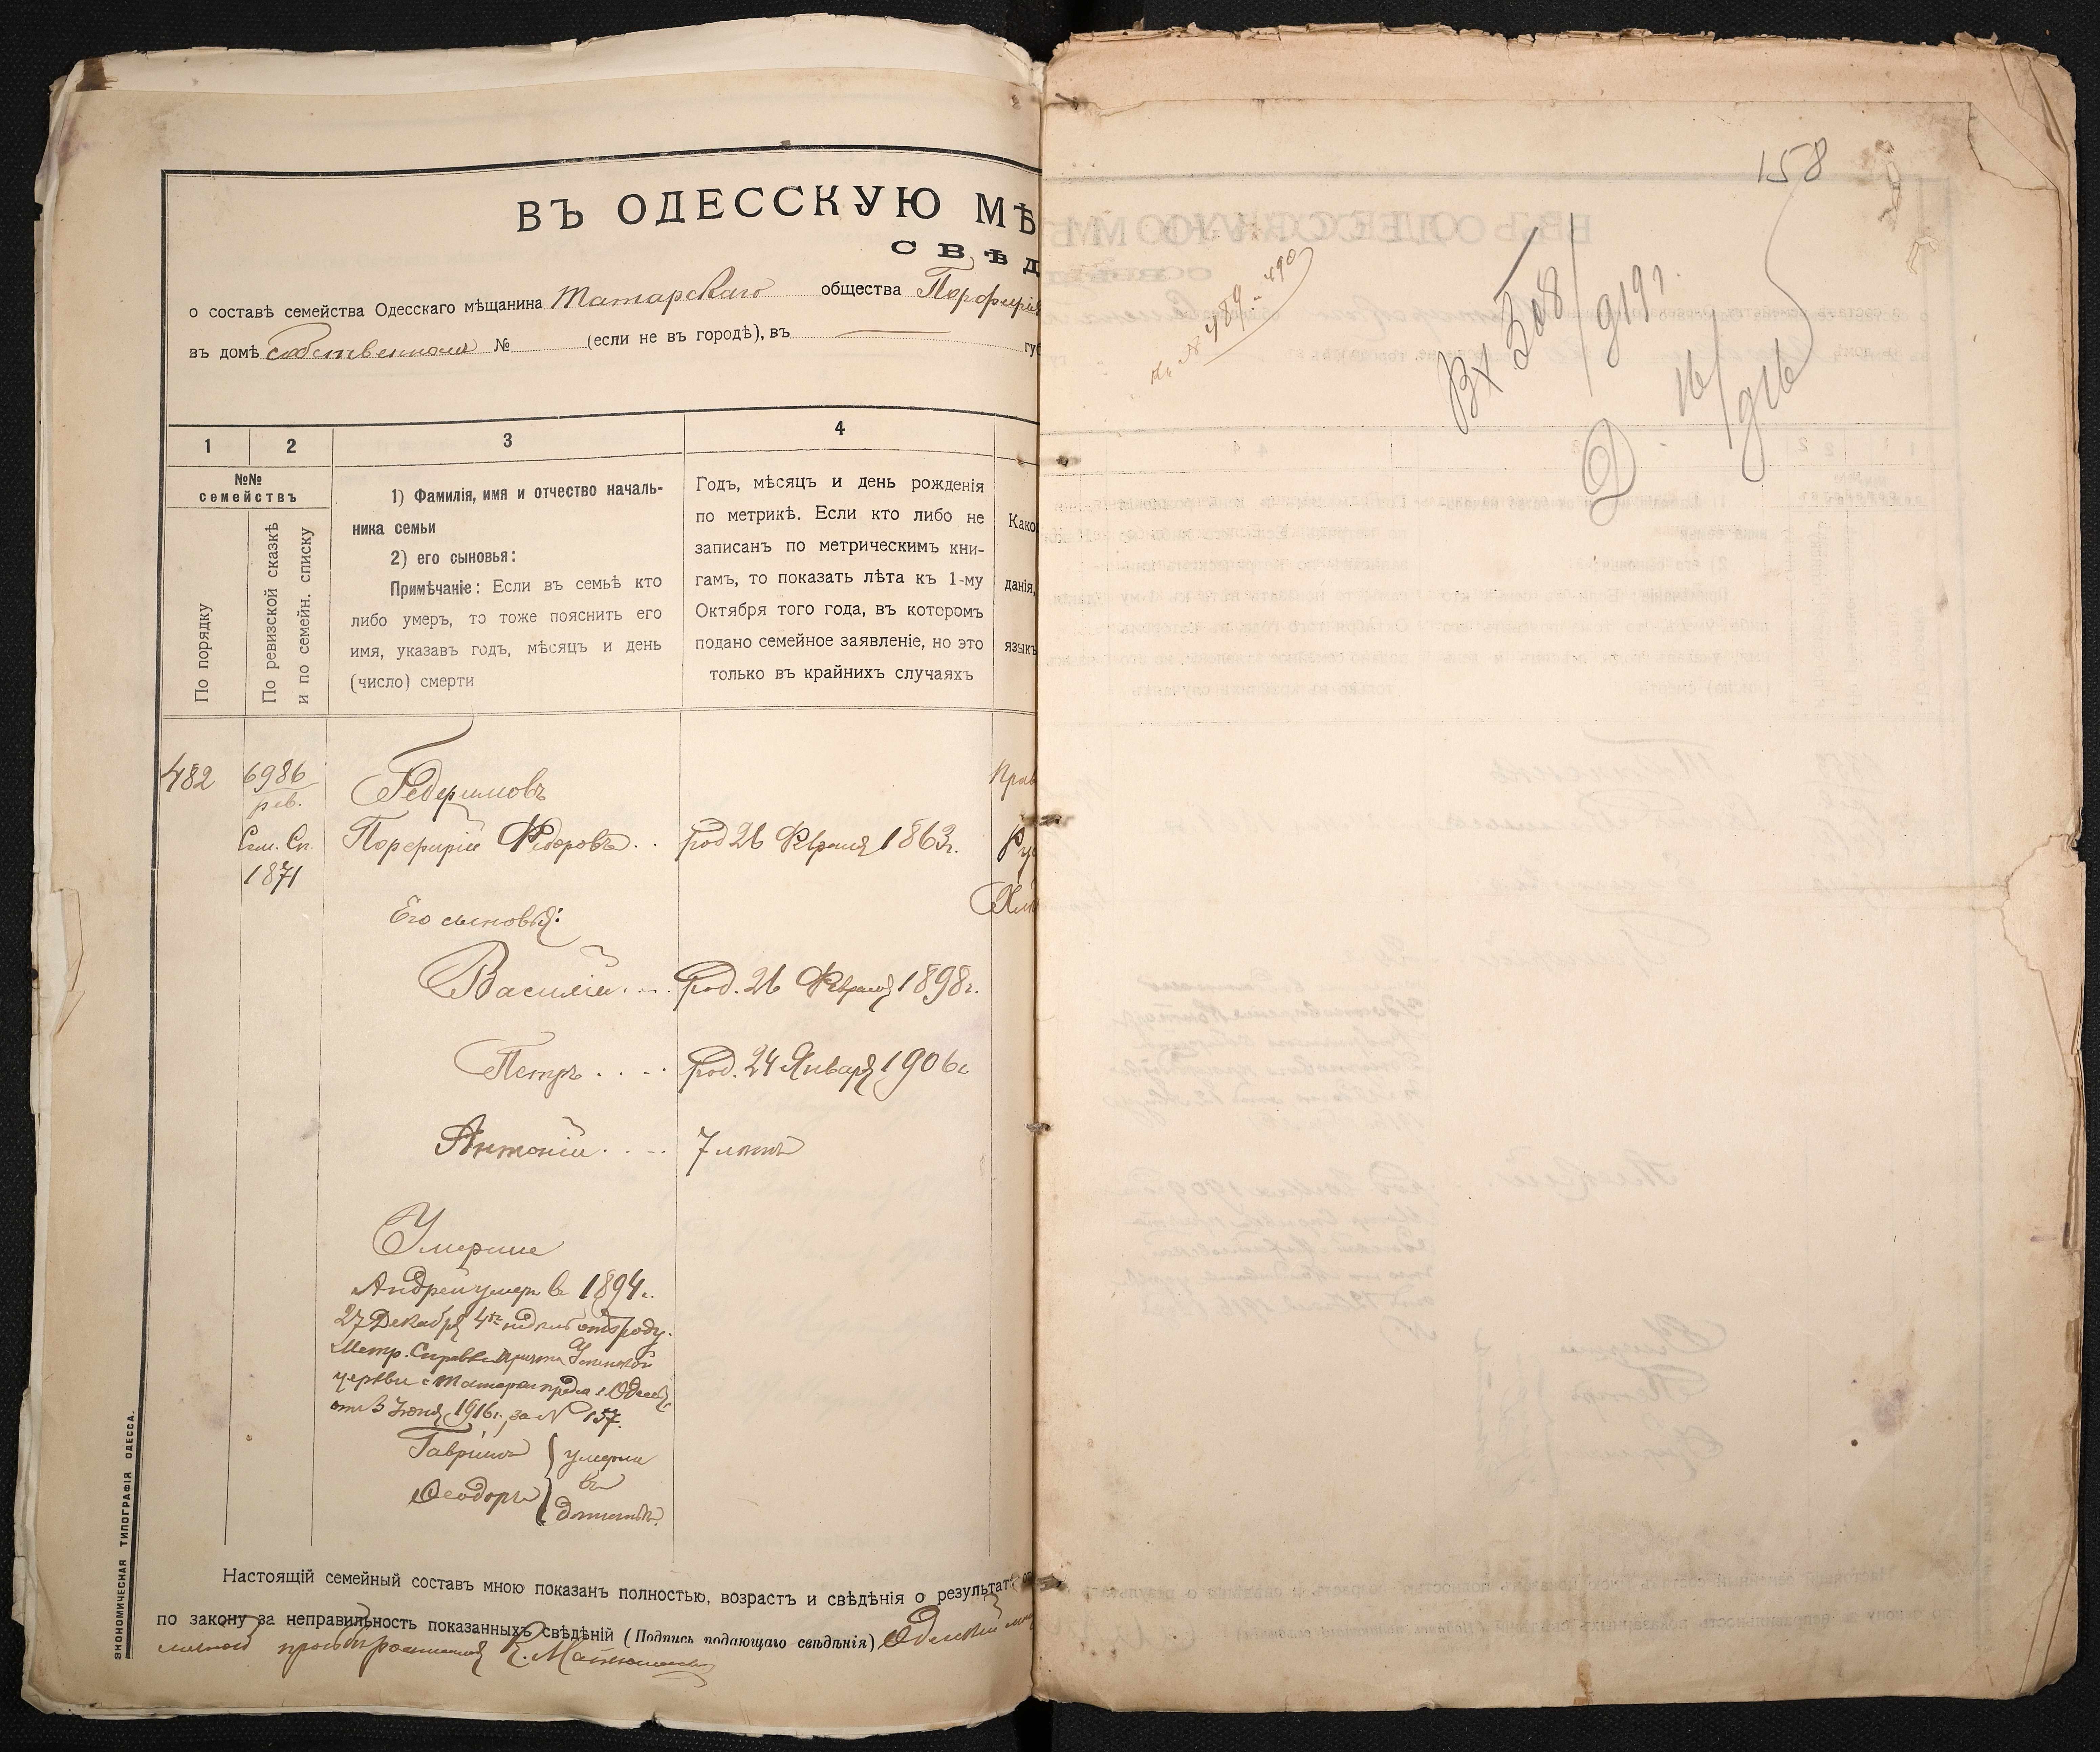 ВЪ ОДЕССКУЮ МѢ
СВѢД
о составѣ семейства Одесскаго мѣщанина Татарскаго общества Порфирія
въ домѣ собственномъ № (если не въ городѣ), въ гу
1 2 3 4
№№
семействъ
По порядку
По ревизской сказкѣ
и по семейн. списку
1) Фамилія, имя и отчество началь-
ника семьи
2) его сыновья:
Примѣчаніе: Если въ семьѣ кто
либо умеръ, то тоже пояснить его
имя, указавъ годъ, мѣсяцъ и день
(число) смерти
Годъ, мѣсяцъ и день рожденія
по метрикѣ. Если кто либо не
записанъ по метрическимъ кни-
гамъ, то показать лѣта къ 1-му
Октября того года, въ которомъ
подано семейное заявленіе, но это
только въ крайнихъ случаяхъ
Како
данія,
языкъ
482 6986 Прав
рев.
Сем. Сп. Порфирій Ѳедоровъ род 26 Февраля 1863г. Рус
1871
Его сыновья:
Василій род. 26 Февраля 1898г.
Петръ род. 24 Января 1906г
Антоній 7 лѣтъ
Умершіе
Андрей умеръ въ 1894г.
27 Декабря 4хъ недѣль отъ роду.
Метр. Справка причта Успенской
церкви
отъ 3 Іюня 1916г. за № 157.
Гавріилъ умерли
Ѳеодоръ въ
дѣтствѣ.
Настоящій семейный составъ мною показанъ полностью, возрастъ и свѣдѣнія о результат
по закону за неправильность показанныхъ свѣдѣній (Подпись подающаго свѣдѣнія) Одесскій
личной просьбѣ
ЭКОНОМИЧЕСКАЯ ТИПОГРАФІЯ ОДЕССА.
158
къ № 489 и 490
Вх
16/916